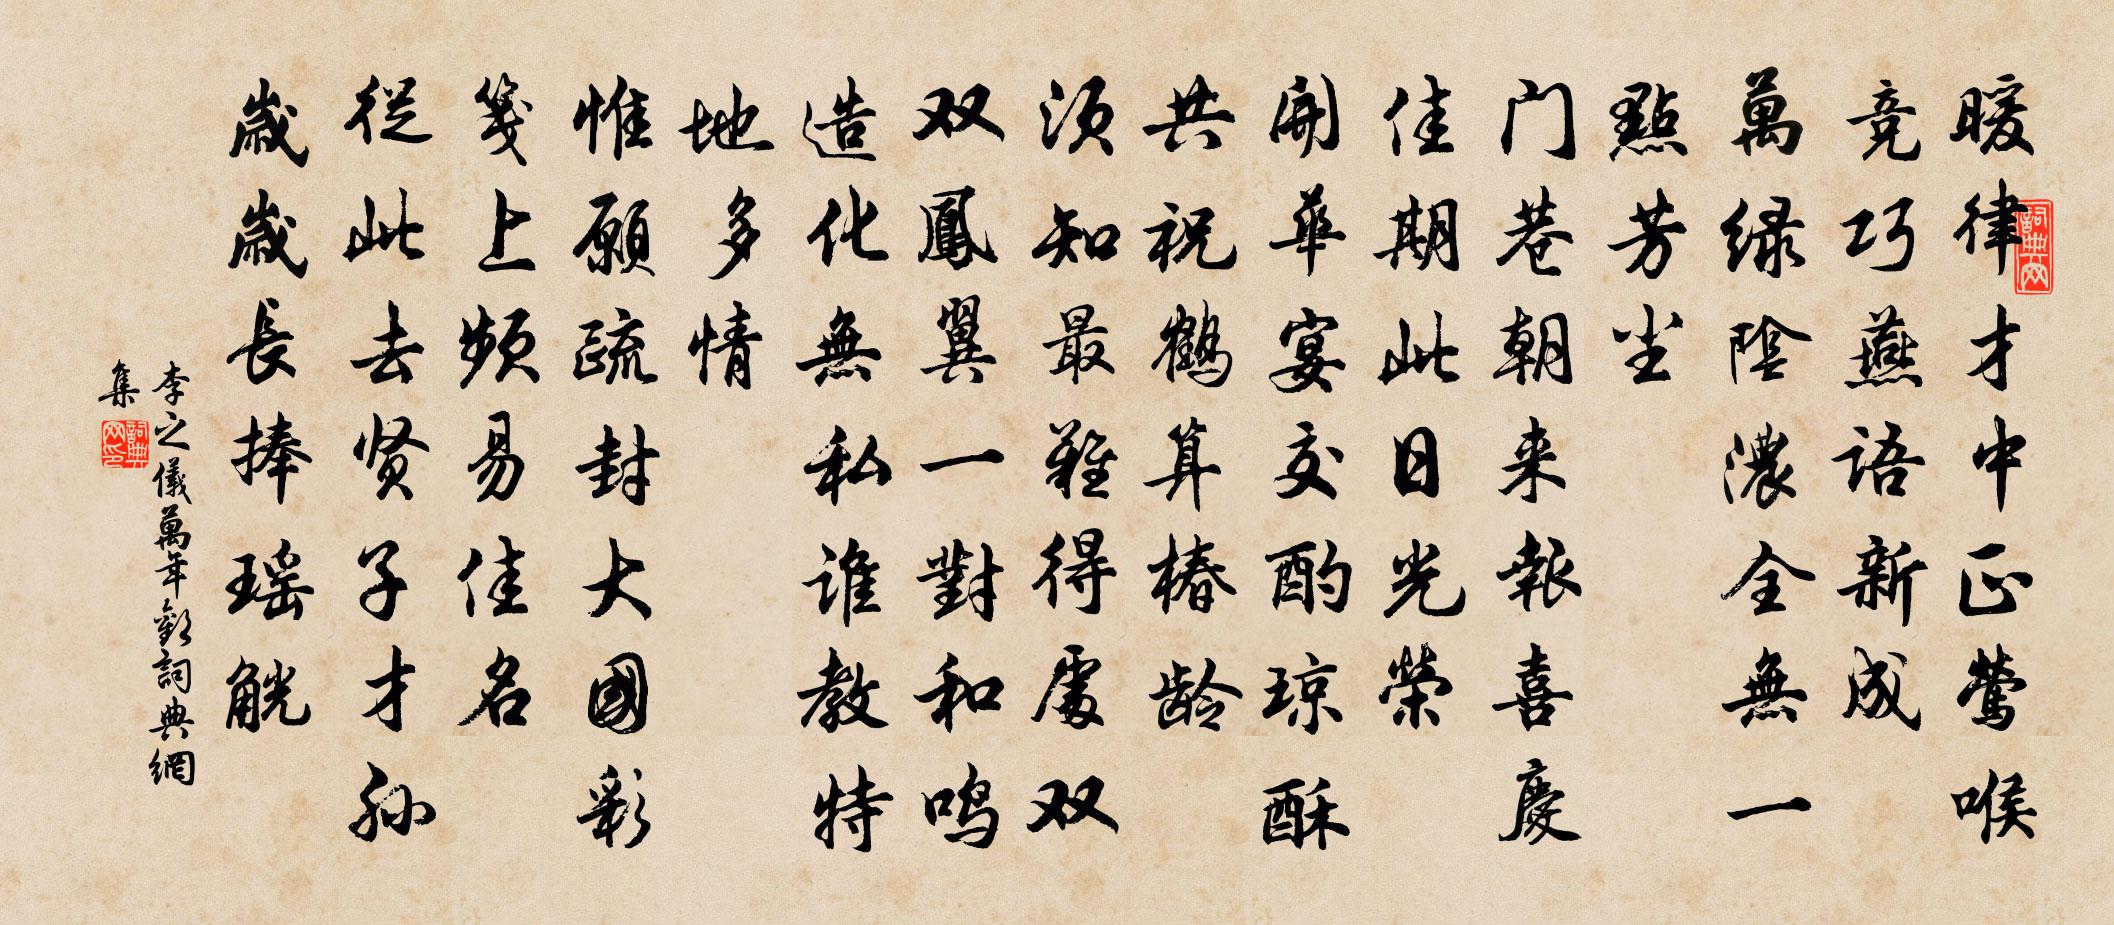 暖律才中正莺喉
竞巧燕语新成
萬绿陰濃全無一
點芳尘
门巷朝来報喜慶
佳期此日光榮
開華宴交酌琼酥
共祝鹤算椿龄
须知最難得處双
双鳳翼一對和鸣
造化無私谁教特
地多情
惟願疏封大國彩
笺上频易佳名
從此去贤子才孙
歲歲長捧瑶觥
李之儀萬年歡詞典網
集
詞典网
詞典网印